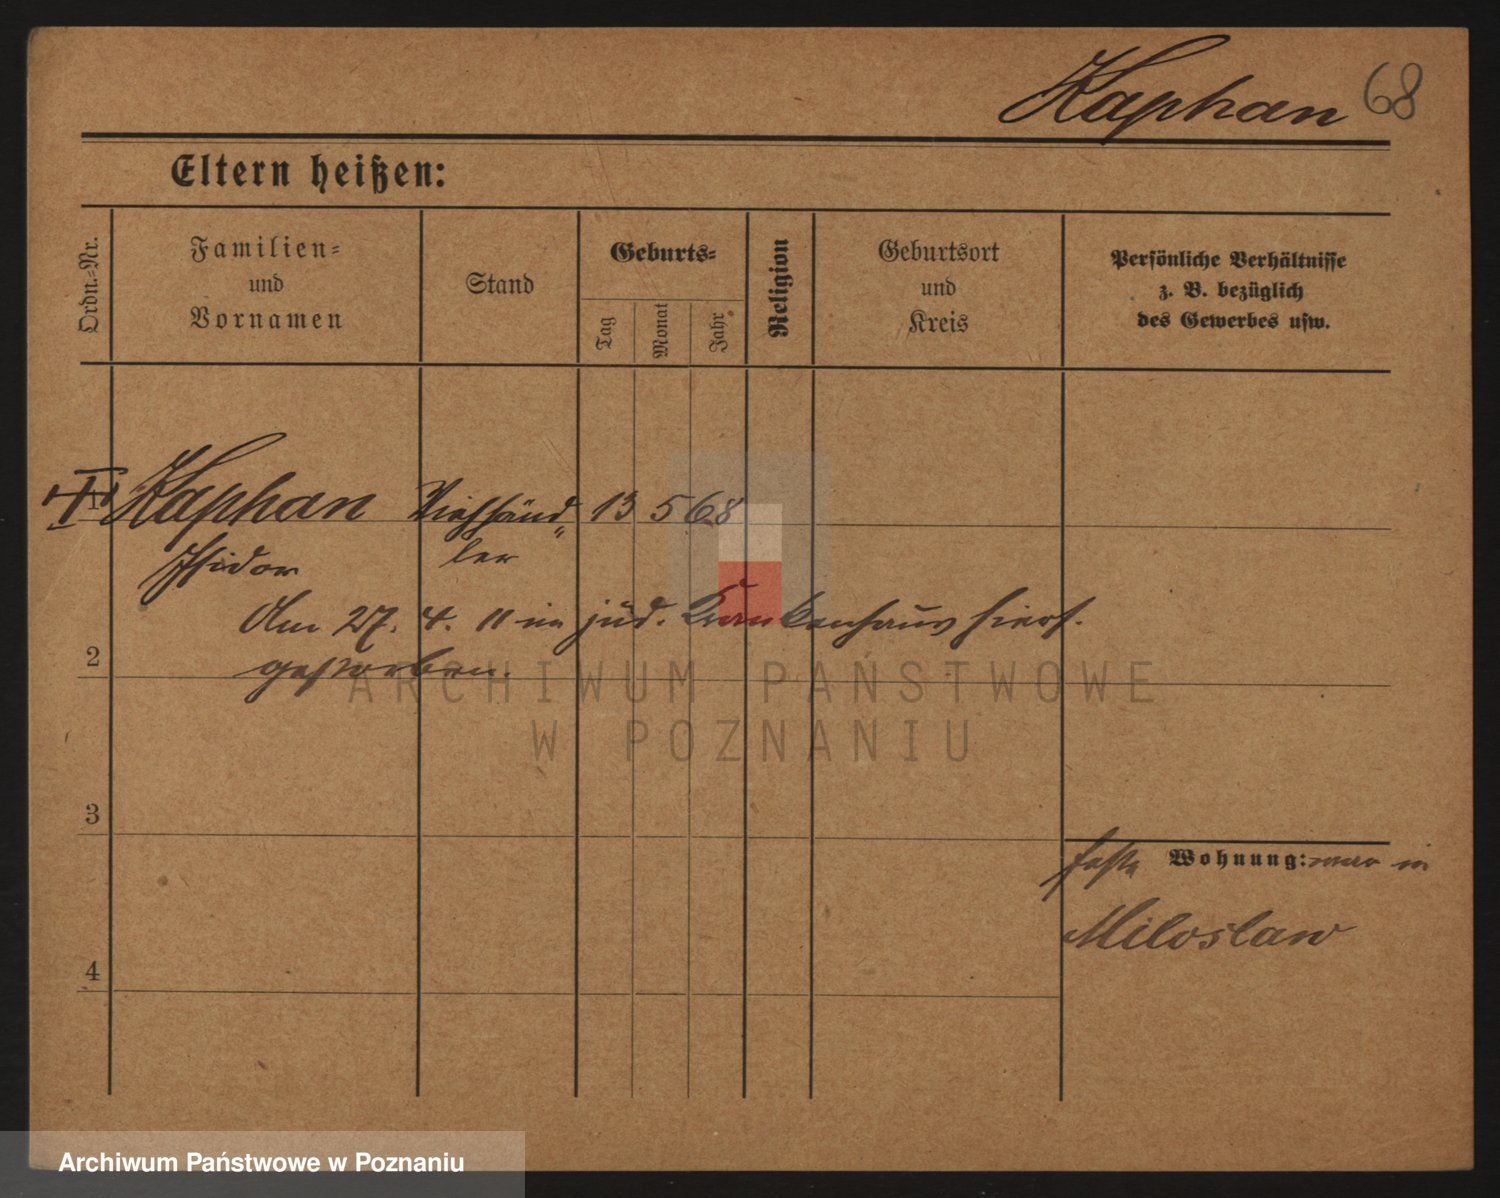 Kaphan 68
Eltern heißen:
Ordn.-Nr.
Familien-
und
Vornamen
Stand
Geburts-
Tag
Monat
Jahr
Religion
Geburtsort
und
Kreis
Persönliche Verhältnisse
z. B. bezüglich
des Gewerbes usw.
1 Kaphan Viehhänd„ 13 5 68
Isidor ler
Am 27. 4. 11 im jüd. Krankenhaus hiers.
2
gestorben.
ARCHIWUM PAŃSTWOWE
W POZNANIU
3
feste Wohnung: war in
Miloslaw
4
Archiwum Państwowe w Poznaniu